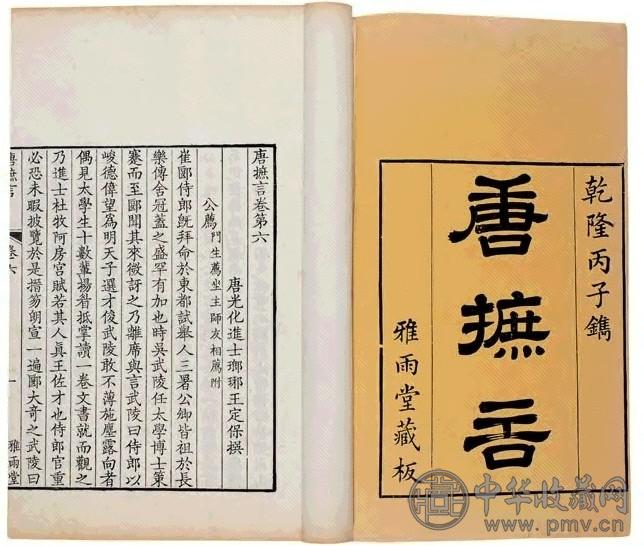 乾隆丙子鐫
唐摭言
雅雨堂藏板
唐摭言卷第六
唐光化進士瑯琊王定保撰
公薦門生薦坐主師友相薦附
崔郾侍郎既拜命於東都試舉人三署公卿皆祖於長
樂傳舍冠蓋之盛罕有加也時吳武陵任太學博士策
蹇而至郾聞其來微訝之乃離席與言武陵曰侍郎以
峻德偉望為明天子選才俊武陵敢不薄施塵露向者
偶見太學生十數輩揚眉抵掌讀一卷文書就而觀之
乃進士杜牧阿房宮賦若其人真王佐才也侍郎官重
必恐未暇披覽於是搢笏朗宣一遍郾大奇之武陵曰
唐摭言
卷六
一
雅雨堂
中华收藏网
www.pmv.cn